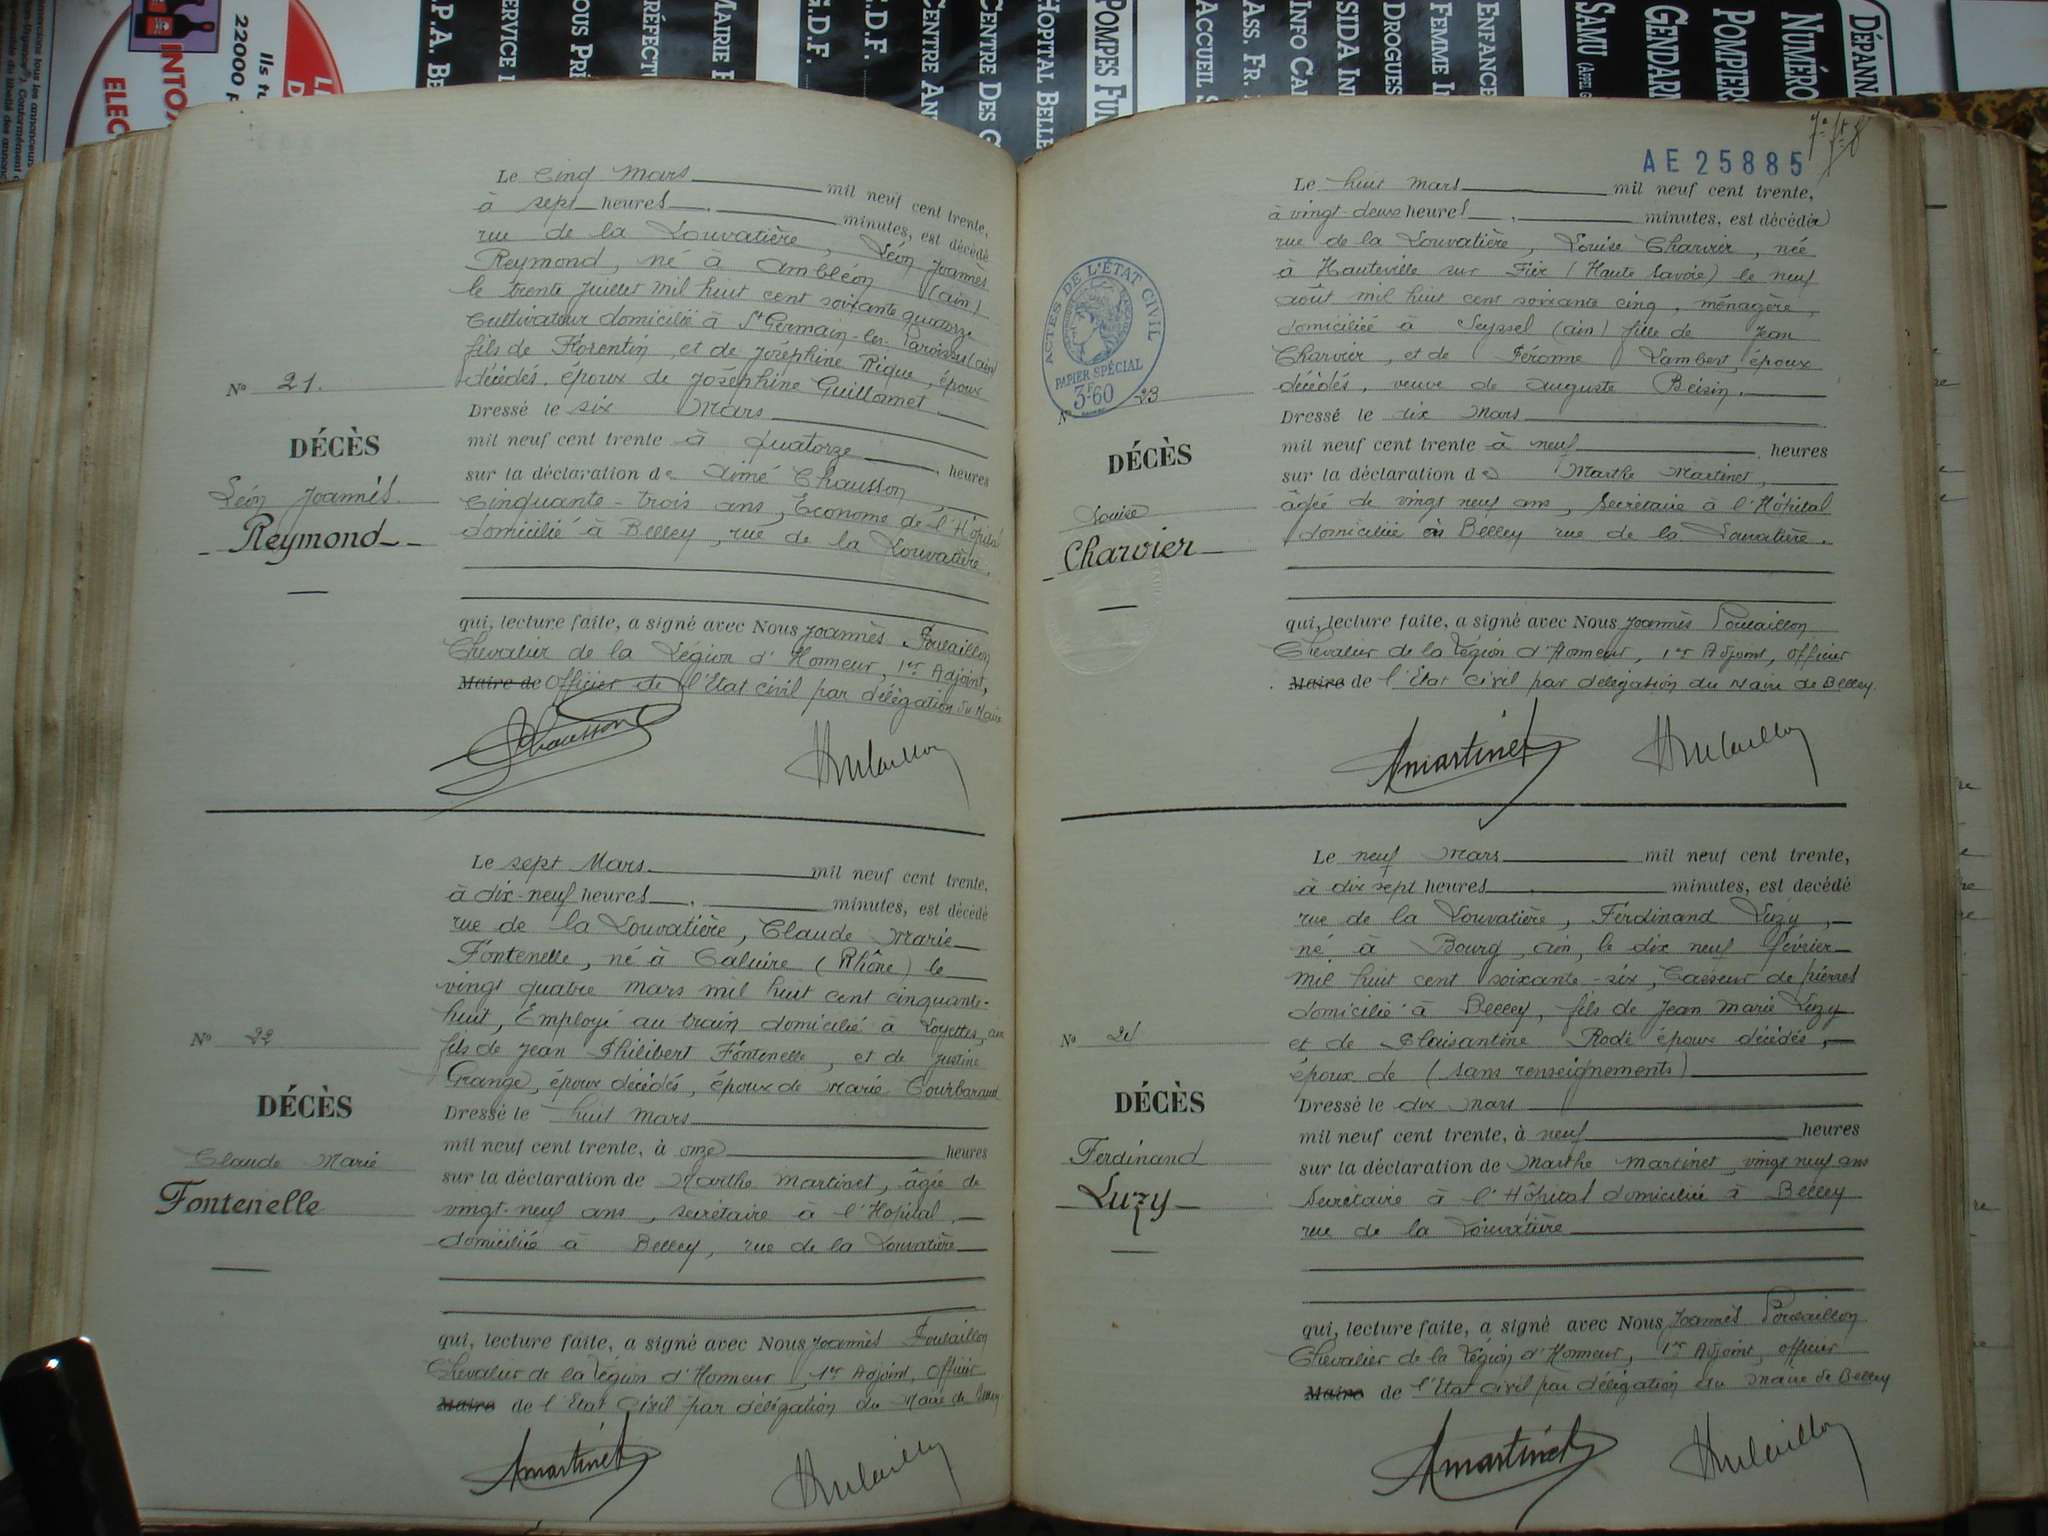 INTOX
ELEC
Ils
22000
P.A. BE
SERVICE
OUS PRÉ
RÉFECT
MAIRIE
G.D.F.
E.D.F.
CENTRE AN
CENTRE DES G
HOPITAL BELLE
POMPES FUN
ACCUEIL S
ASS. FR.
INFO CA
SIDA IN
DROGUES
FEMME I
ENFANCE
SAMU (APPEL
GENDARM
POMPIERS
NUMÉRO
DÉPANN
Le cinq mars mil neuf cent trente,
à sept heures minutes, est décédé
rue de la Louvatière, Léon Joannès
Reymond, né à Ambléon (ain)
le trente juillet mil huit cent soixante quatorze
Cultivateur domicilié à St Germain-les-Paroisses (ain)
fils de Florentin et de Joséphine Rique, époux
décédés, époux de Joséphine Guillomet
Dressé le six Mars
mil neuf cent trente à quatorze heures
sur la déclaration de Aimé Chausson
cinquante-trois ans, Econome de l'Hôpital
domicilié à Belley, rue de la Louvatière.
qui, lecture faite, a signé avec Nous Joannès Poulaillon
Chevalier de la Légion d'Honneur, 1er Adjoint,
Maire de Officier de l'Etat civil par délégation du Maire
Chausson
Poulaillon
N° 21.
DÉCÈS
Léon Joannès
Reymond
Le sept Mars mil neuf cent trente,
à dix-neuf heures minutes, est décédé
rue de la Louvatière, Claude Marie
Fontenelle, né à Caluire (Rhône) le
vingt quatre mars mil huit cent cinquante-
huit, Employé au train domicilié à Loyettes, ain
fils de Jean Philibert Fontenelle, et de Justine
Grange, époux décédés, époux de Marie Courbaraud
Dressé le huit mars
mil neuf cent trente, à onze heures
sur la déclaration de Marthe Martinet, âgée de
vingt-neuf ans, secrétaire à l'Hopital,
domiciliée à Belley, rue de la Louvatière
qui, lecture faite, a signé avec Nous Joannès Poulaillon
Chevalier de la Légion d'Honneur, 1er Adjoint, officier
Maire de l'Etat Civil par délégation du Maire de Belley
Martinet
Poulaillon
N° 22
DÉCÈS
Claude Marie
Fontenelle
AE 25885
Le huit mars mil neuf cent trente,
à vingt-deux heures minutes, est décédée
rue de la Louvatière, Louise Charvier, née
à Hauteville sur Fier (Haute Savoie) le neuf
août mil huit cent soixante cinq, ménagère,
domiciliée à Seyssel (ain) fille de Jean
Charvier, et de Féronne Lambert, époux
décédés, veuve de Auguste Beisin.
Dressé le dix Mars
mil neuf cent trente à neuf heures
sur la déclaration de Marthe Martinet,
âgée de vingt neuf ans, Secrétaire à l'Hôpital
domiciliée à Belley rue de la Louvatière.
qui, lecture faite, a signé avec Nous Joannès Poulaillon
Chevalier de la Légion d'Honneur, 1er Adjoint, officier
Maire de l'Etat Civil par délégation du Maire de Belley.
Martinet
Poulaillon
ACTES DE L'ÉTAT CIVIL
PAPIER SPÉCIAL
3F60
N° 23
DÉCÈS
Louise
Charvier
Le neuf Mars mil neuf cent trente,
à dix sept heures minutes, est decédé
rue de la Louvatière, Ferdinand Luzy,
né à Bourg, ain, le dix neuf février
mil huit cent soixante-six, Casseur de pierres
domicilié à Belley, fils de Jean Marie Luzy
et de Plaisantine Rodé époux décédés,
époux de (sans renseignements)
Dressé le dix mars
mil neuf cent trente, à neuf heures
sur la déclaration de Marthe Martinet, vingt neuf ans
Secrétaire à l'Hôpital domiciliée à Belley
rue de la Louvatière
qui, lecture faite, a signé avec Nous Joannès Poulaillon
Chevalier de la Légion d'Honneur, 1er Adjoint, officier
Maire de l'Etat Civil par délégation du Maire de Belley
Martinet
Poulaillon
N° 24
DÉCÈS
Ferdinand
Luzy